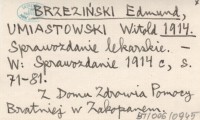 BRZEZIŃSKI Edmund,
UMIASTOWSKI Witold 1914.
Sprawozdanie lekarskie. –
W: Sprawozdanie 1914 c, s.
71-81.
Z Domu Zdrowia Pomocy
Bratniej w Zakopanem.
BT/006/0945